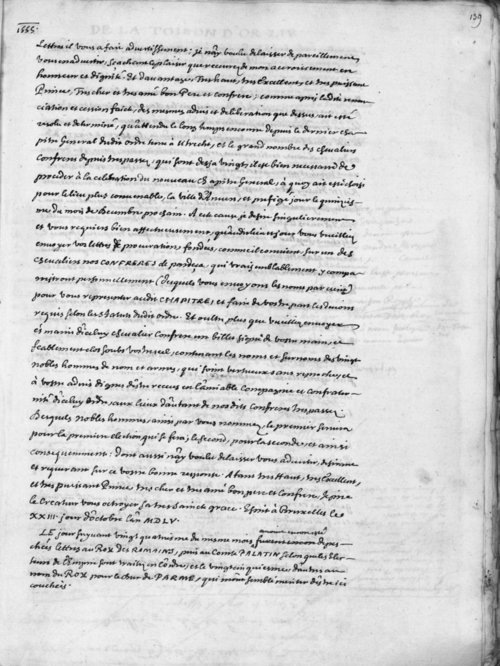 139
1555.
DE LA TOISON D'OR LIV
Lettre il vous a fait advertissement: je n'ay voulu delaisser de pareillement
vous en advertir, sçachant le plaisir que recevrez de mon accroissement en
honneur et dignité. Et davantaige, Treshault, tres Excellent, et tres puissant
Prince, Trescher et tresamé bon Pere et Confrere, comme apres ladite renon
ciation et cession faicte, des mesmes advis et deliberation que dessus, ait esté
resolu et determiné, qu'attendu le long temps encouru depuis le dernier cha
pitre General dudit ordre tenu a Utrecht, et le grand nombre des chevaliers
Confreres depuis trespassez, qui sont desja vingt, il est bien necessaire de
proceder à la celebration du nouveau Chapitre General, à quoy ait esté choisi
pour le lieu plus convenable, la ville d'Anvers, et prefigé jour le quinzies
me du mois de Decembre prochain. A ceste cause je desire singulierement
et vous requiers bien affectueusement, qu'audit lieu et jour vous vueilliez
envoyer vos lettres de procuration, fondées, comme il convient, sur un des
chevaliers nos CONFRERES de pardeça, qui vraysemblablement y compa
roistront personnellement (desquels vous envoyons les noms par escript)
pour vous representer audit CHAPITRE, et faire de vostre part les devoirs
requis selon les statuts dudit ordre. Et oultre plus que vueilliez envoyer
es mains d'iceluy chevalier Confrere un billet signé de vostre main, et
feablement clos soubs vostre seel, contenant les noms et surnoms des vingt
nobles hommes de nom et armes, qui soient vertueux sans reproche, et
à vostre advis dignes d'estre receus en l'amiable Compagnie et Confrater
nité d'iceluy ordre, aux lieux d'autant de nosdits Confreres trespassez
Desquels nobles hommes, ainsi par vous nommez, le premier servira
pour la premiere election qui se fera; le second, pour la seconde, et ainsi
consequemment: dont aussi n'ay voulu delaisser vous advertir, desirant
et requerant sur ce vostre bonne response. Atant treshault, tres Excellent,
et tres puissant Prince trescher et tresamé bon pere et Confrere, je prie
le Createur vous octroyer sa tres Saincte grace. Escrit à Bruxelles le
XXIII jour d'Octobre l'an MDLV.
LE jour suyvant vingt quatriesme du mesme mois furent encore depes
chées lettres au ROY des ROMAINS, puis au Comte PALATIN selon que les Elec
teurs de l'Empire sont traitez en l'ordre, et le vingt cinquiesme d'autres au
nom du ROY pour le ducq de PARME, qui m'ont semblé meriter d'estre icy
couchées.